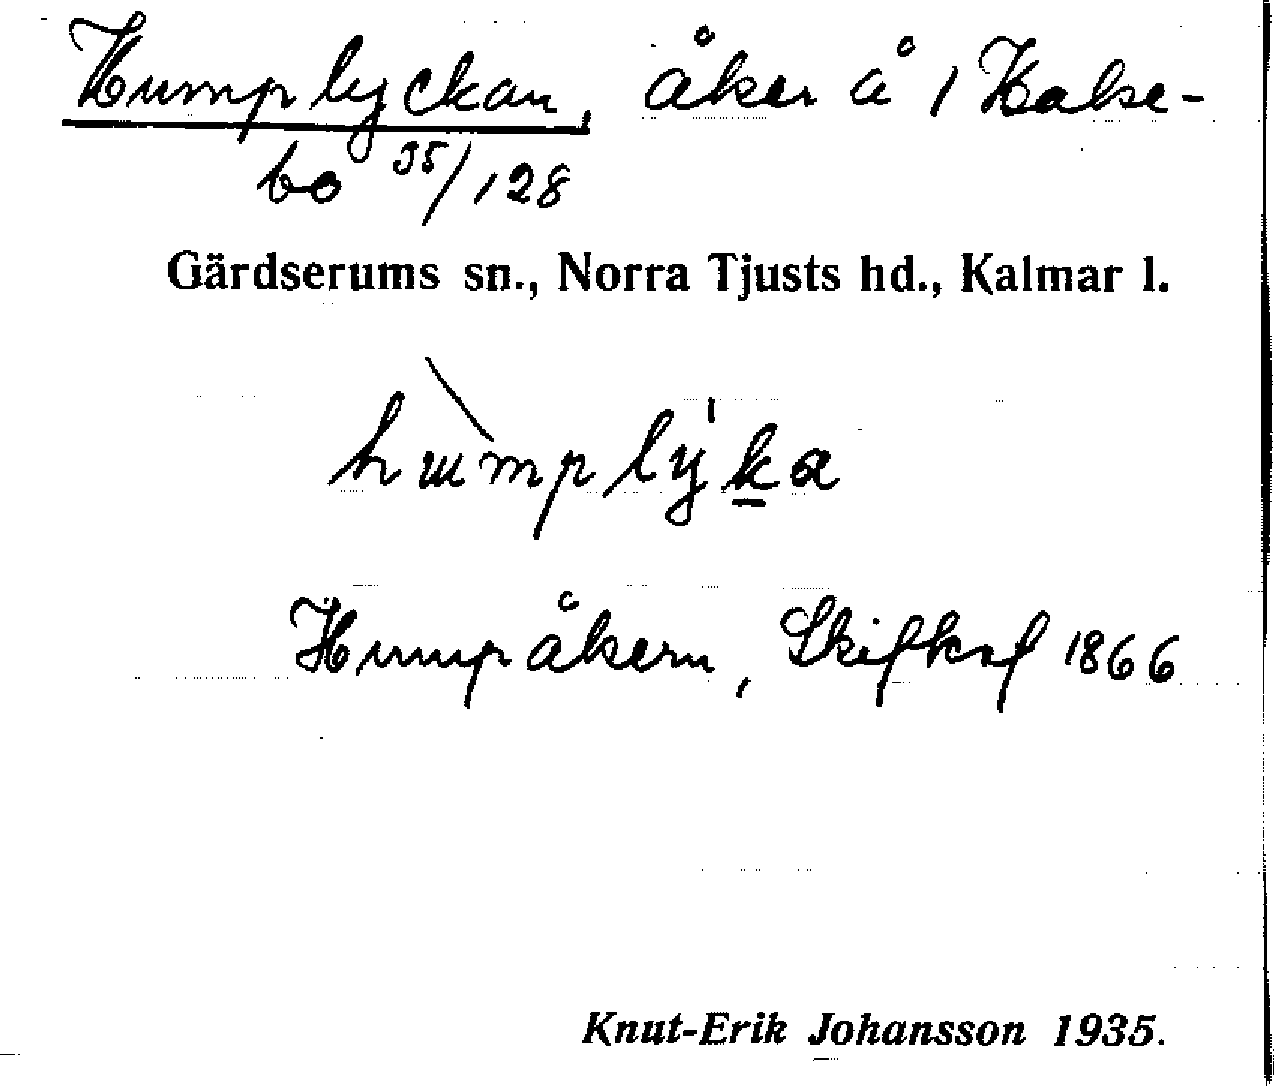 Humplyckan, åker å 1 Halse-
bo 35/128
Gärdserums sn., Norra Tjusts hd., Kalmar l.
humplyka
Humpåkern, Skifksf 1866
Knut-Erik Johansson 1935.